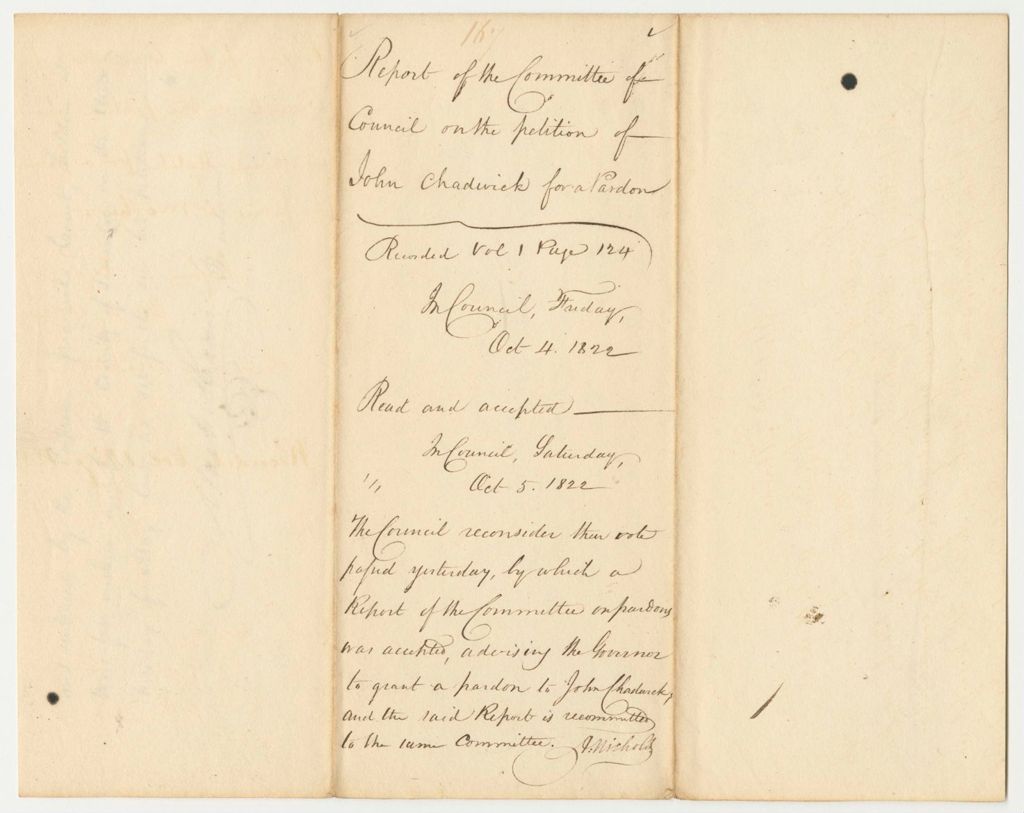 16
Report of the Committee of
Council on the petition of
John Chadwick for a Pardon
Recorded Vol 1 Page 124
In Council, Friday,
Oct 4. 1822
Read and accepted
In Council, Saturday,
Oct 5. 1822
The Council reconsider their vote
passed yesterday, by which a
Report of the Committee on pardons
was accepted, advising the Governor
to grant a pardon to John Chadwick,
and the said Report is recommitted
to the same Committee. J. Nichols